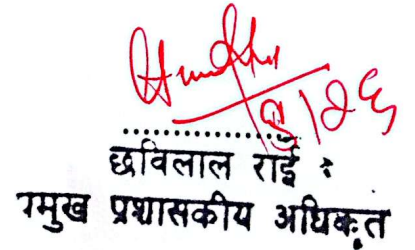 ..................
छविलाल राई
प्रमुख प्रशासकीय अधिकृत